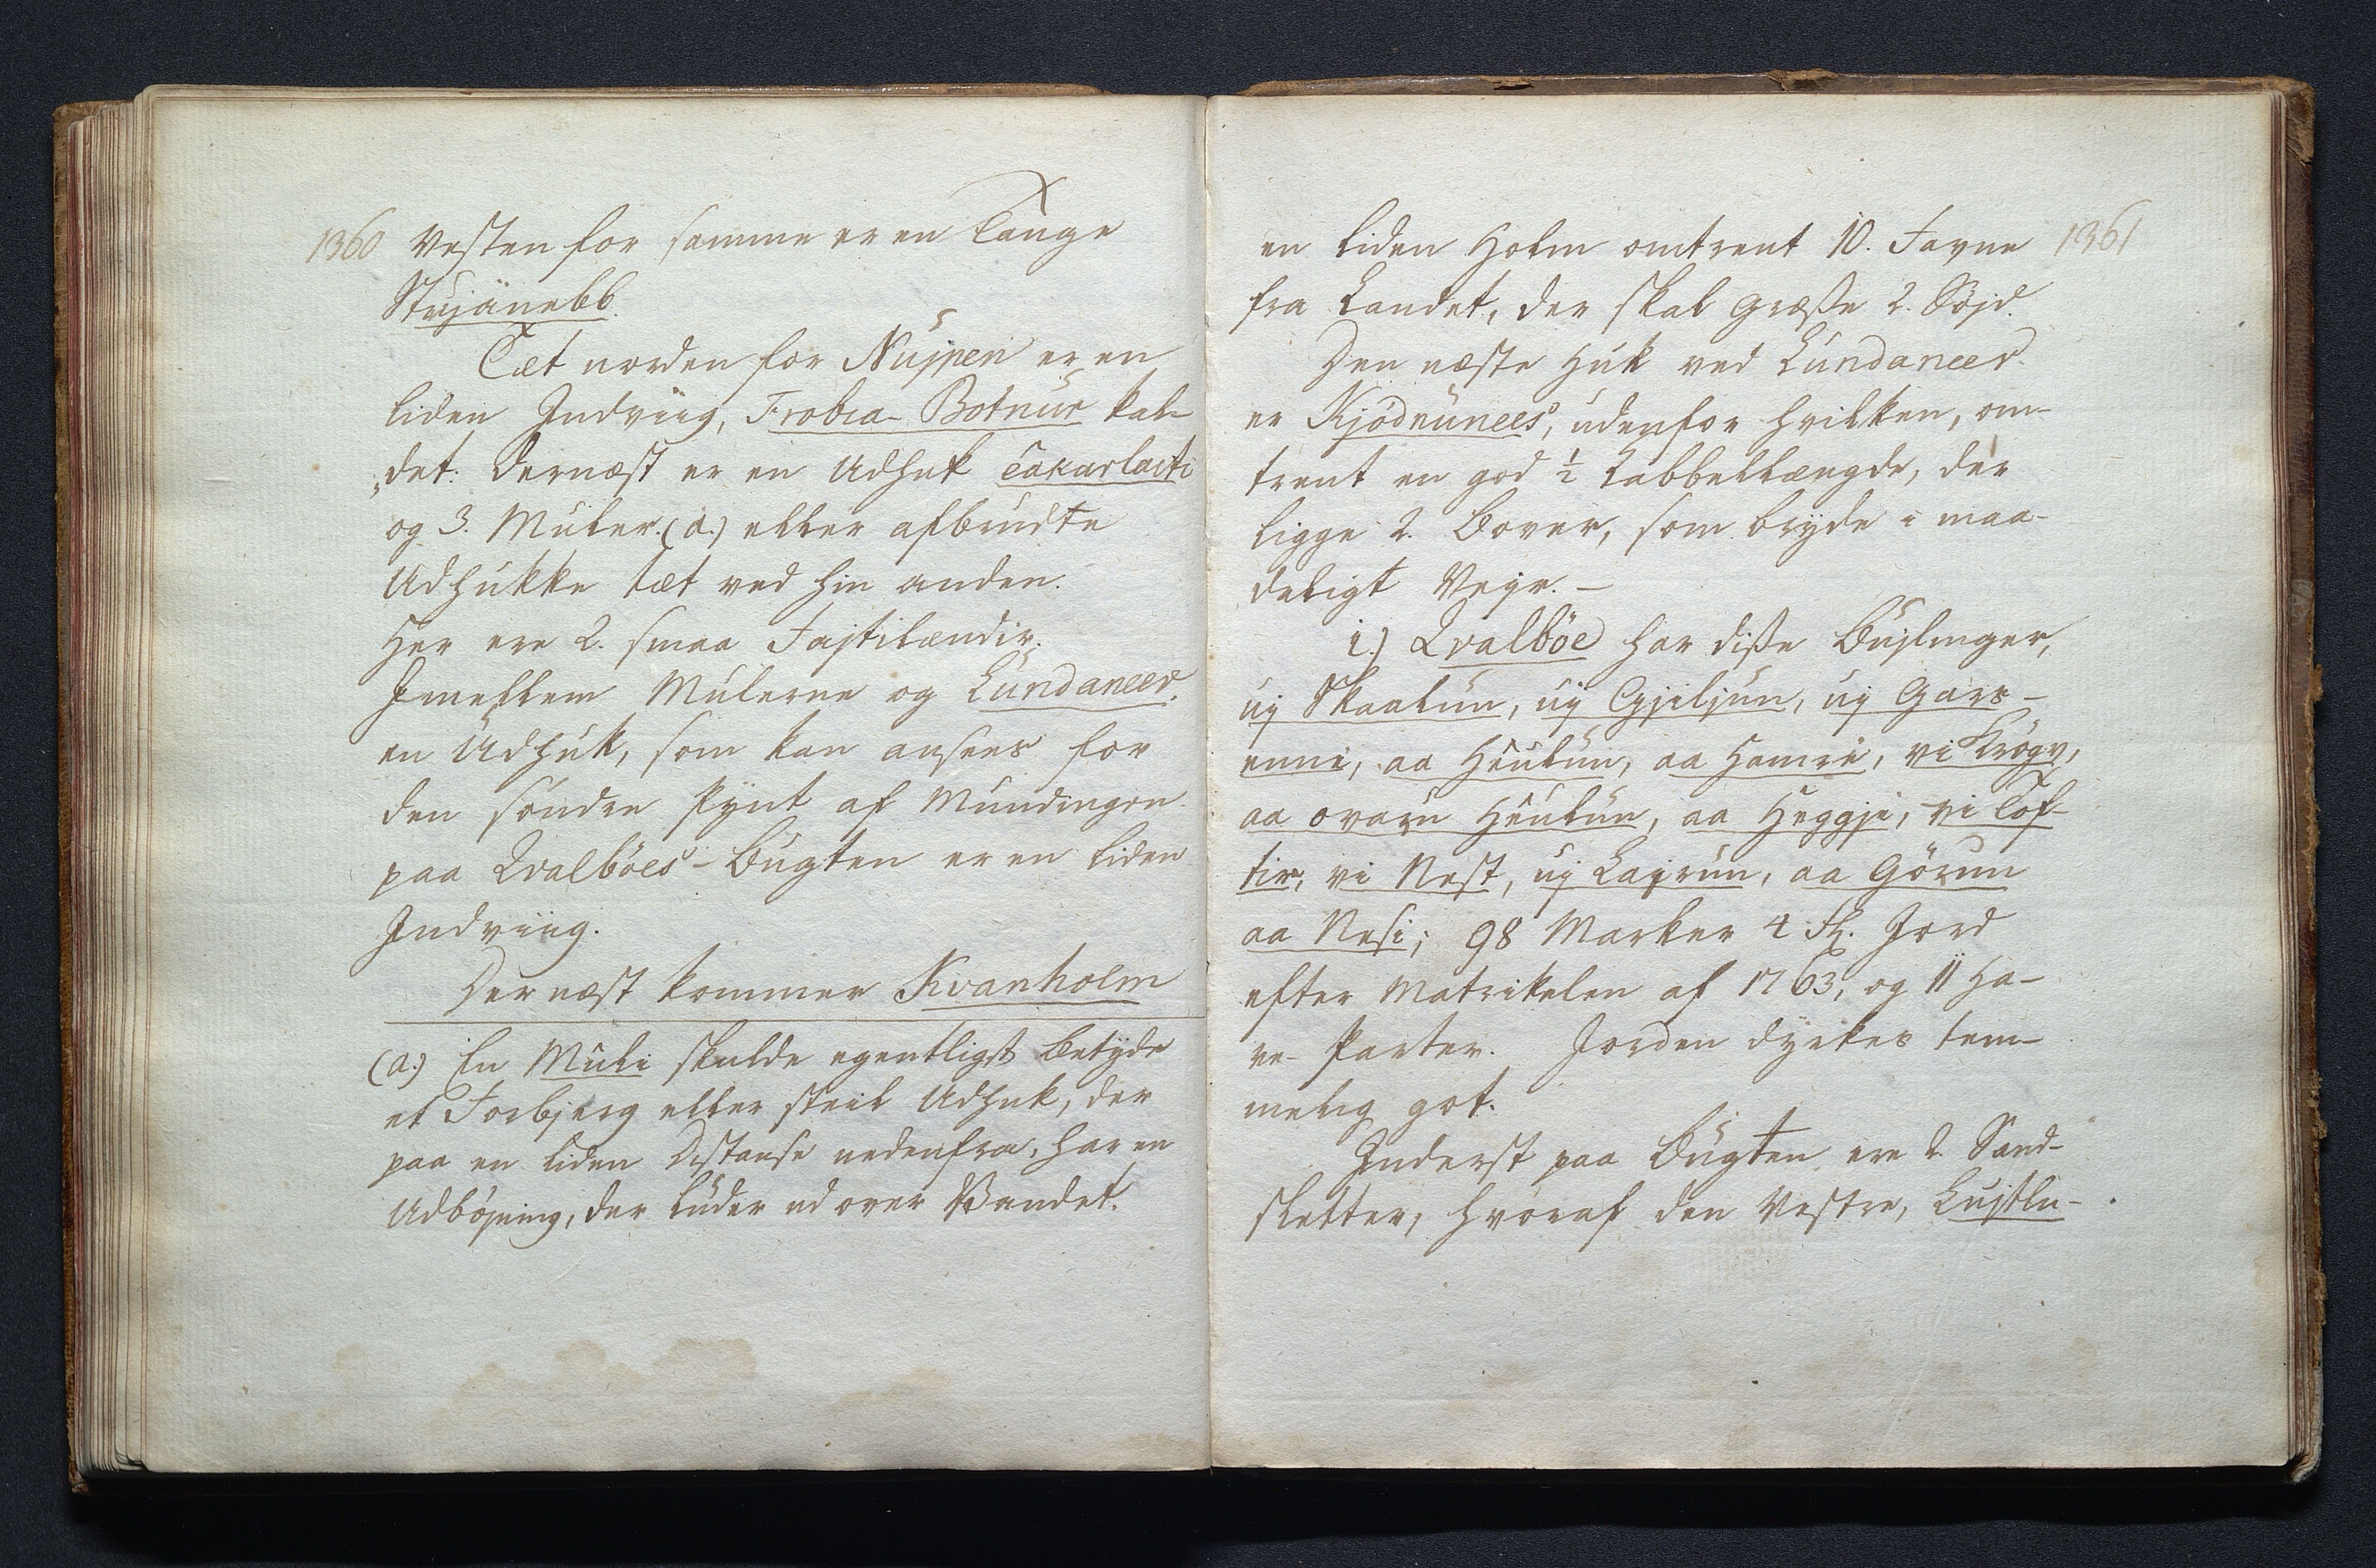 1360 Vesten for samme er en Tange
Strjänebb.
Tæt norden for Nujpen er en
liden Indviig, Frobia-Botnur kal-
det: Dernæst er en Udhuk Takarlasti
og 3. Muler (a.) eller afbrudte
Udhukke tæt ved hin anden.
Her ere 2. smaa Fajtilændir.
Imellem Mulerne og Lundaneer.
en Udhuk, som kan ansees for
den söndre Pynt af Mundingen
paa Qvalböes-Bugten er en liden
Indviig.
Dernæst kommer Kvanholm
(a.) En Muli skulde egentligst betyde
et Forbjerg eller steil Udhuk, der
paa en liden Distanse nedenfra, har en
Udböjning, der luder ud over Vandet.
en liden Holm omtrent 10. Favne 1361
fra Landet, der skal græsse 2. Söjd.
Den næste Huk ved Lundaneer
er Kjödnunees, udenfor hvilken, om-
trent en god ½ Kabbellængde, der
ligge 2. Bover, som bryde i maa-
deligt Vejr. –
i.) Qvalböe har disse Bujlinger,
uj Skaalun, uj Gjiljun, uj Gars-
enni, aa Heulun, aa Hamri, vi Krögv,
aa ovaru Heulun, aa Heggji, vi Tof-
tir, vi Nest, uj Lajrun, aa Görun
aa Nesi; 98 Marker 4 Sk. Jord
efter Matrikelen af 1763, og 11 Ha-
ve-Parter. Jorden dyrkes tem-
melig got.
Inderst paa Bugten ere 2. Sand-
sletter, hvoraf den Vestre, Lujtlu-